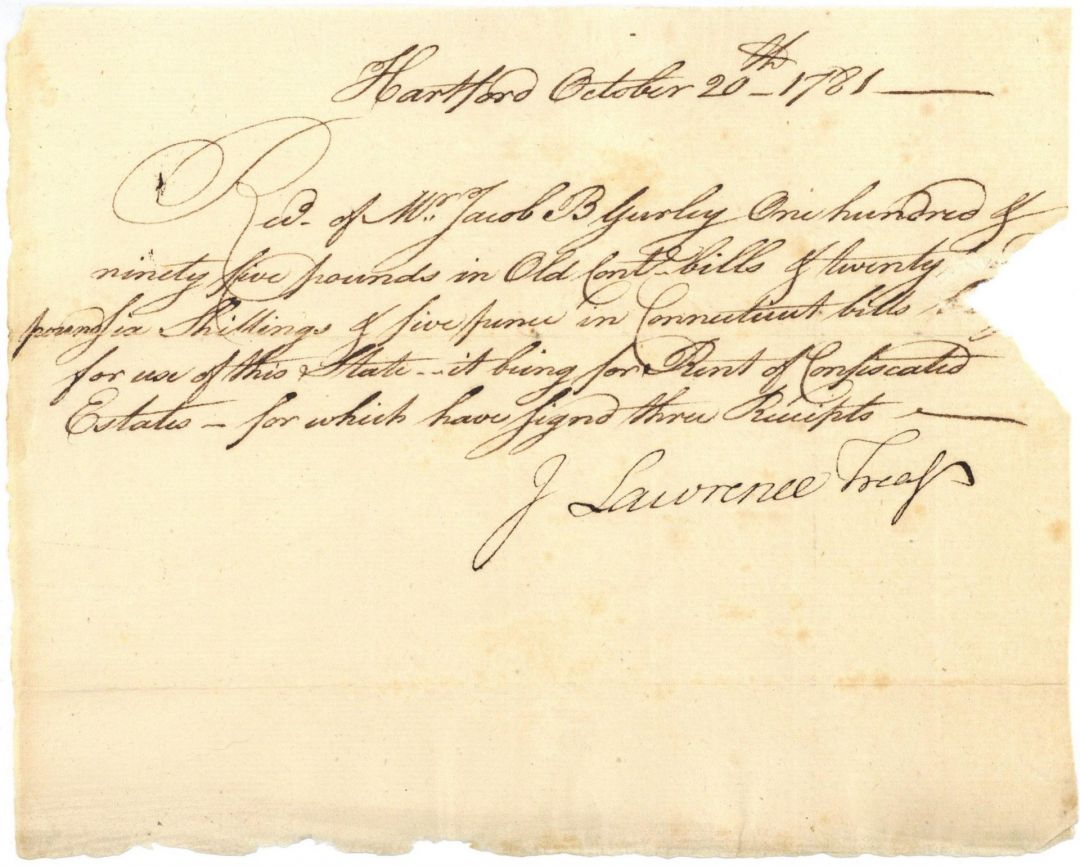 Hartford October 20th - 1781
Recd. of Mr. Jacob B Gurley One hundred &
ninety five pounds in Old Contl. bills & twenty
pound six Shillings & five pence in Connecticut bills
for use of this State -- it being for Rent of Confiscated
Estates - for which have signd three Receipts
J Lawrence Treasr